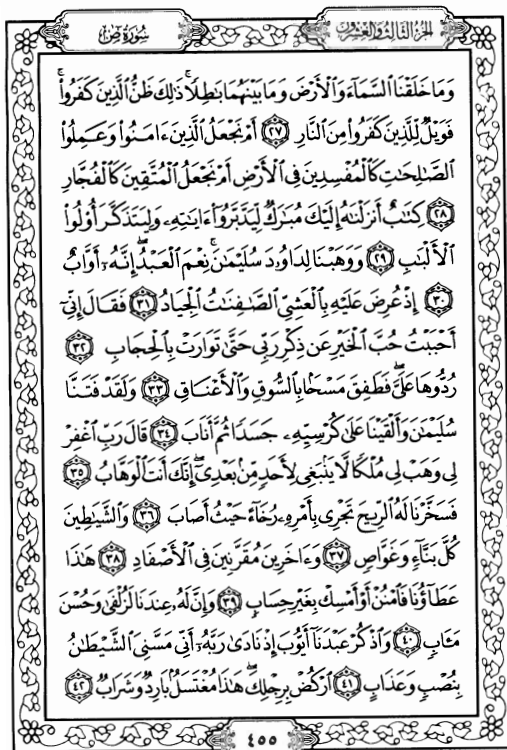 سُورَةُ صٓ
الجُزْءُ الثَّالِثُ وَالعِشْرُونَ
وَمَا خَلَقْنَا ٱلسَّمَآءَ وَٱلْأَرْضَ وَمَا بَيْنَهُمَا بَٰطِلًا ۚ ذَٰلِكَ ظَنُّ ٱلَّذِينَ كَفَرُوا۟ ۚ
فَوَيْلٌ لِّلَّذِينَ كَفَرُوا۟ مِنَ ٱلنَّارِ ٢٧ أَمْ نَجْعَلُ ٱلَّذِينَ ءَامَنُوا۟ وَعَمِلُوا۟
ٱلصَّٰلِحَٰتِ كَٱلْمُفْسِدِينَ فِى ٱلْأَرْضِ أَمْ نَجْعَلُ ٱلْمُتَّقِينَ كَٱلْفُجَّارِ
٢٨ كِتَٰبٌ أَنزَلْنَٰهُ إِلَيْكَ مُبَٰرَكٌ لِّيَدَّبَّرُوٓا۟ ءَايَٰتِهِۦ وَلِيَتَذَكَّرَ أُو۟لُوا۟
ٱلْأَلْبَٰبِ ٢٩ وَوَهَبْنَا لِدَاوُۥدَ سُلَيْمَٰنَ ۚ نِعْمَ ٱلْعَبْدُ ۖ إِنَّهُۥٓ أَوَّابٌ
٣٠ إِذْ عُرِضَ عَلَيْهِ بِٱلْعَشِىِّ ٱلصَّٰفِنَٰتُ ٱلْجِيَادُ ٣١ فَقَالَ إِنِّىٓ
أَحْبَبْتُ حُبَّ ٱلْخَيْرِ عَن ذِكْرِ رَبِّى حَتَّىٰ تَوَارَتْ بِٱلْحِجَابِ ٣٢
رُدُّوهَا عَلَىَّ ۖ فَطَفِقَ مَسْحًۢا بِٱلسُّوقِ وَٱلْأَعْنَاقِ ٣٣ وَلَقَدْ فَتَنَّا
سُلَيْمَٰنَ وَأَلْقَيْنَا عَلَىٰ كُرْسِيِّهِۦ جَسَدًا ثُمَّ أَنَابَ ٣٤ قَالَ رَبِّ ٱغْفِرْ
لِى وَهَبْ لِى مُلْكًا لَّا يَنۢبَغِى لِأَحَدٍ مِّنۢ بَعْدِىٓ ۖ إِنَّكَ أَنتَ ٱلْوَهَّابُ ٣٥
فَسَخَّرْنَا لَهُ ٱلرِّيحَ تَجْرِى بِأَمْرِهِۦ رُخَآءً حَيْثُ أَصَابَ ٣٦ وَٱلشَّيَٰطِينَ
كُلَّ بَنَّآءٍ وَغَوَّاصٍ ٣٧ وَءَاخَرِينَ مُقَرَّنِينَ فِى ٱلْأَصْفَادِ ٣٨ هَٰذَا
عَطَآؤُنَا فَٱمْنُنْ أَوْ أَمْسِكْ بِغَيْرِ حِسَابٍ ٣٩ وَإِنَّ لَهُۥ عِندَنَا لَزُلْفَىٰ وَحُسْنَ
مَـَٔابٍ ٤٠ وَٱذْكُرْ عَبْدَنَآ أَيُّوبَ إِذْ نَادَىٰ رَبَّهُۥٓ أَنِّى مَسَّنِىَ ٱلشَّيْطَٰنُ
بِنُصْبٍ وَعَذَابٍ ٤١ ٱرْكُضْ بِرِجْلِكَ ۖ هَٰذَا مُغْتَسَلٌۢ بَارِدٌ وَشَرَابٌ ٤٢
٤٥٥